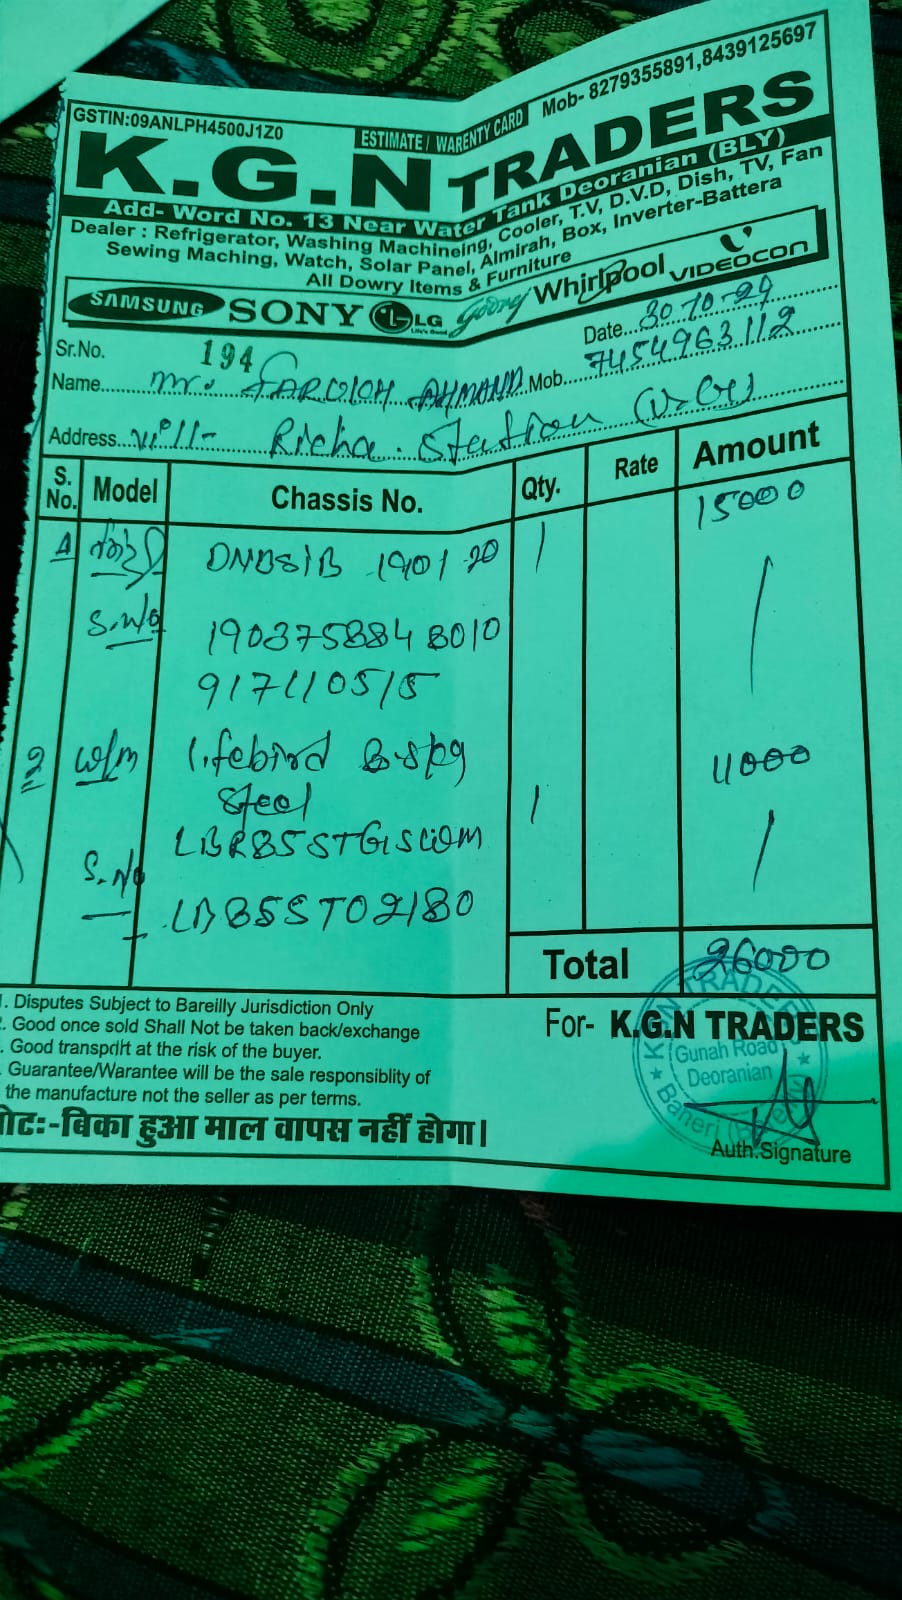 GSTIN:09ANLPH4500J1Z0
ESTIMATE / WARENTY CARD
Mob- 8279355891,8439125697
K.G.N TRADERS
Add- Word No. 13 Near Water Tank Deoranian (BLY)
Dealer : Refrigerator, Washing Machineing, Cooler, T.V, D.V.D, Dish, TV, Fan
Sewing Maching, Watch, Solar Panel, Almirah, Box, Inverter-Battera
All Dowry Items & Furniture
SAMSUNG SONY LG Life's Good Godrej Whirlpool VIDEOCON
Sr.No. 194 Date... 30-10-24
Name... Mr. AHMAND Mob... 7454963112
Address... Vill- Richa. Station
S. No. Model Chassis No. Qty. Rate Amount
1 DNBS1B 190120 1 15000
S.N/o 190375884 8010
917110515
2 W/m Lifebird 8.5kg 11000
Steel 1
S.No
LB85ST02180
Total 26000
1. Disputes Subject to Bareilly Jurisdiction Only
2. Good once sold Shall Not be taken back/exchange
. Good transport at the risk of the buyer.
. Guarantee/Warantee will be the sale responsiblity of
the manufacture not the seller as per terms.
नोट:-बिका हुआ माल वापस नहीं होगा।
For- K.G.N TRADERS
K.G.N TRADERS
Gunah Road
Deoranian
Auth.Signature